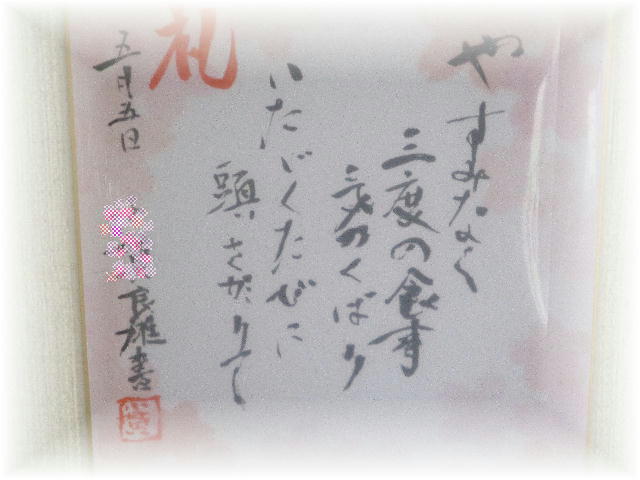 やすみなく
三度の食事
気のくばり
いただくたびに
頭さがりて
礼
五月五日
良雄書